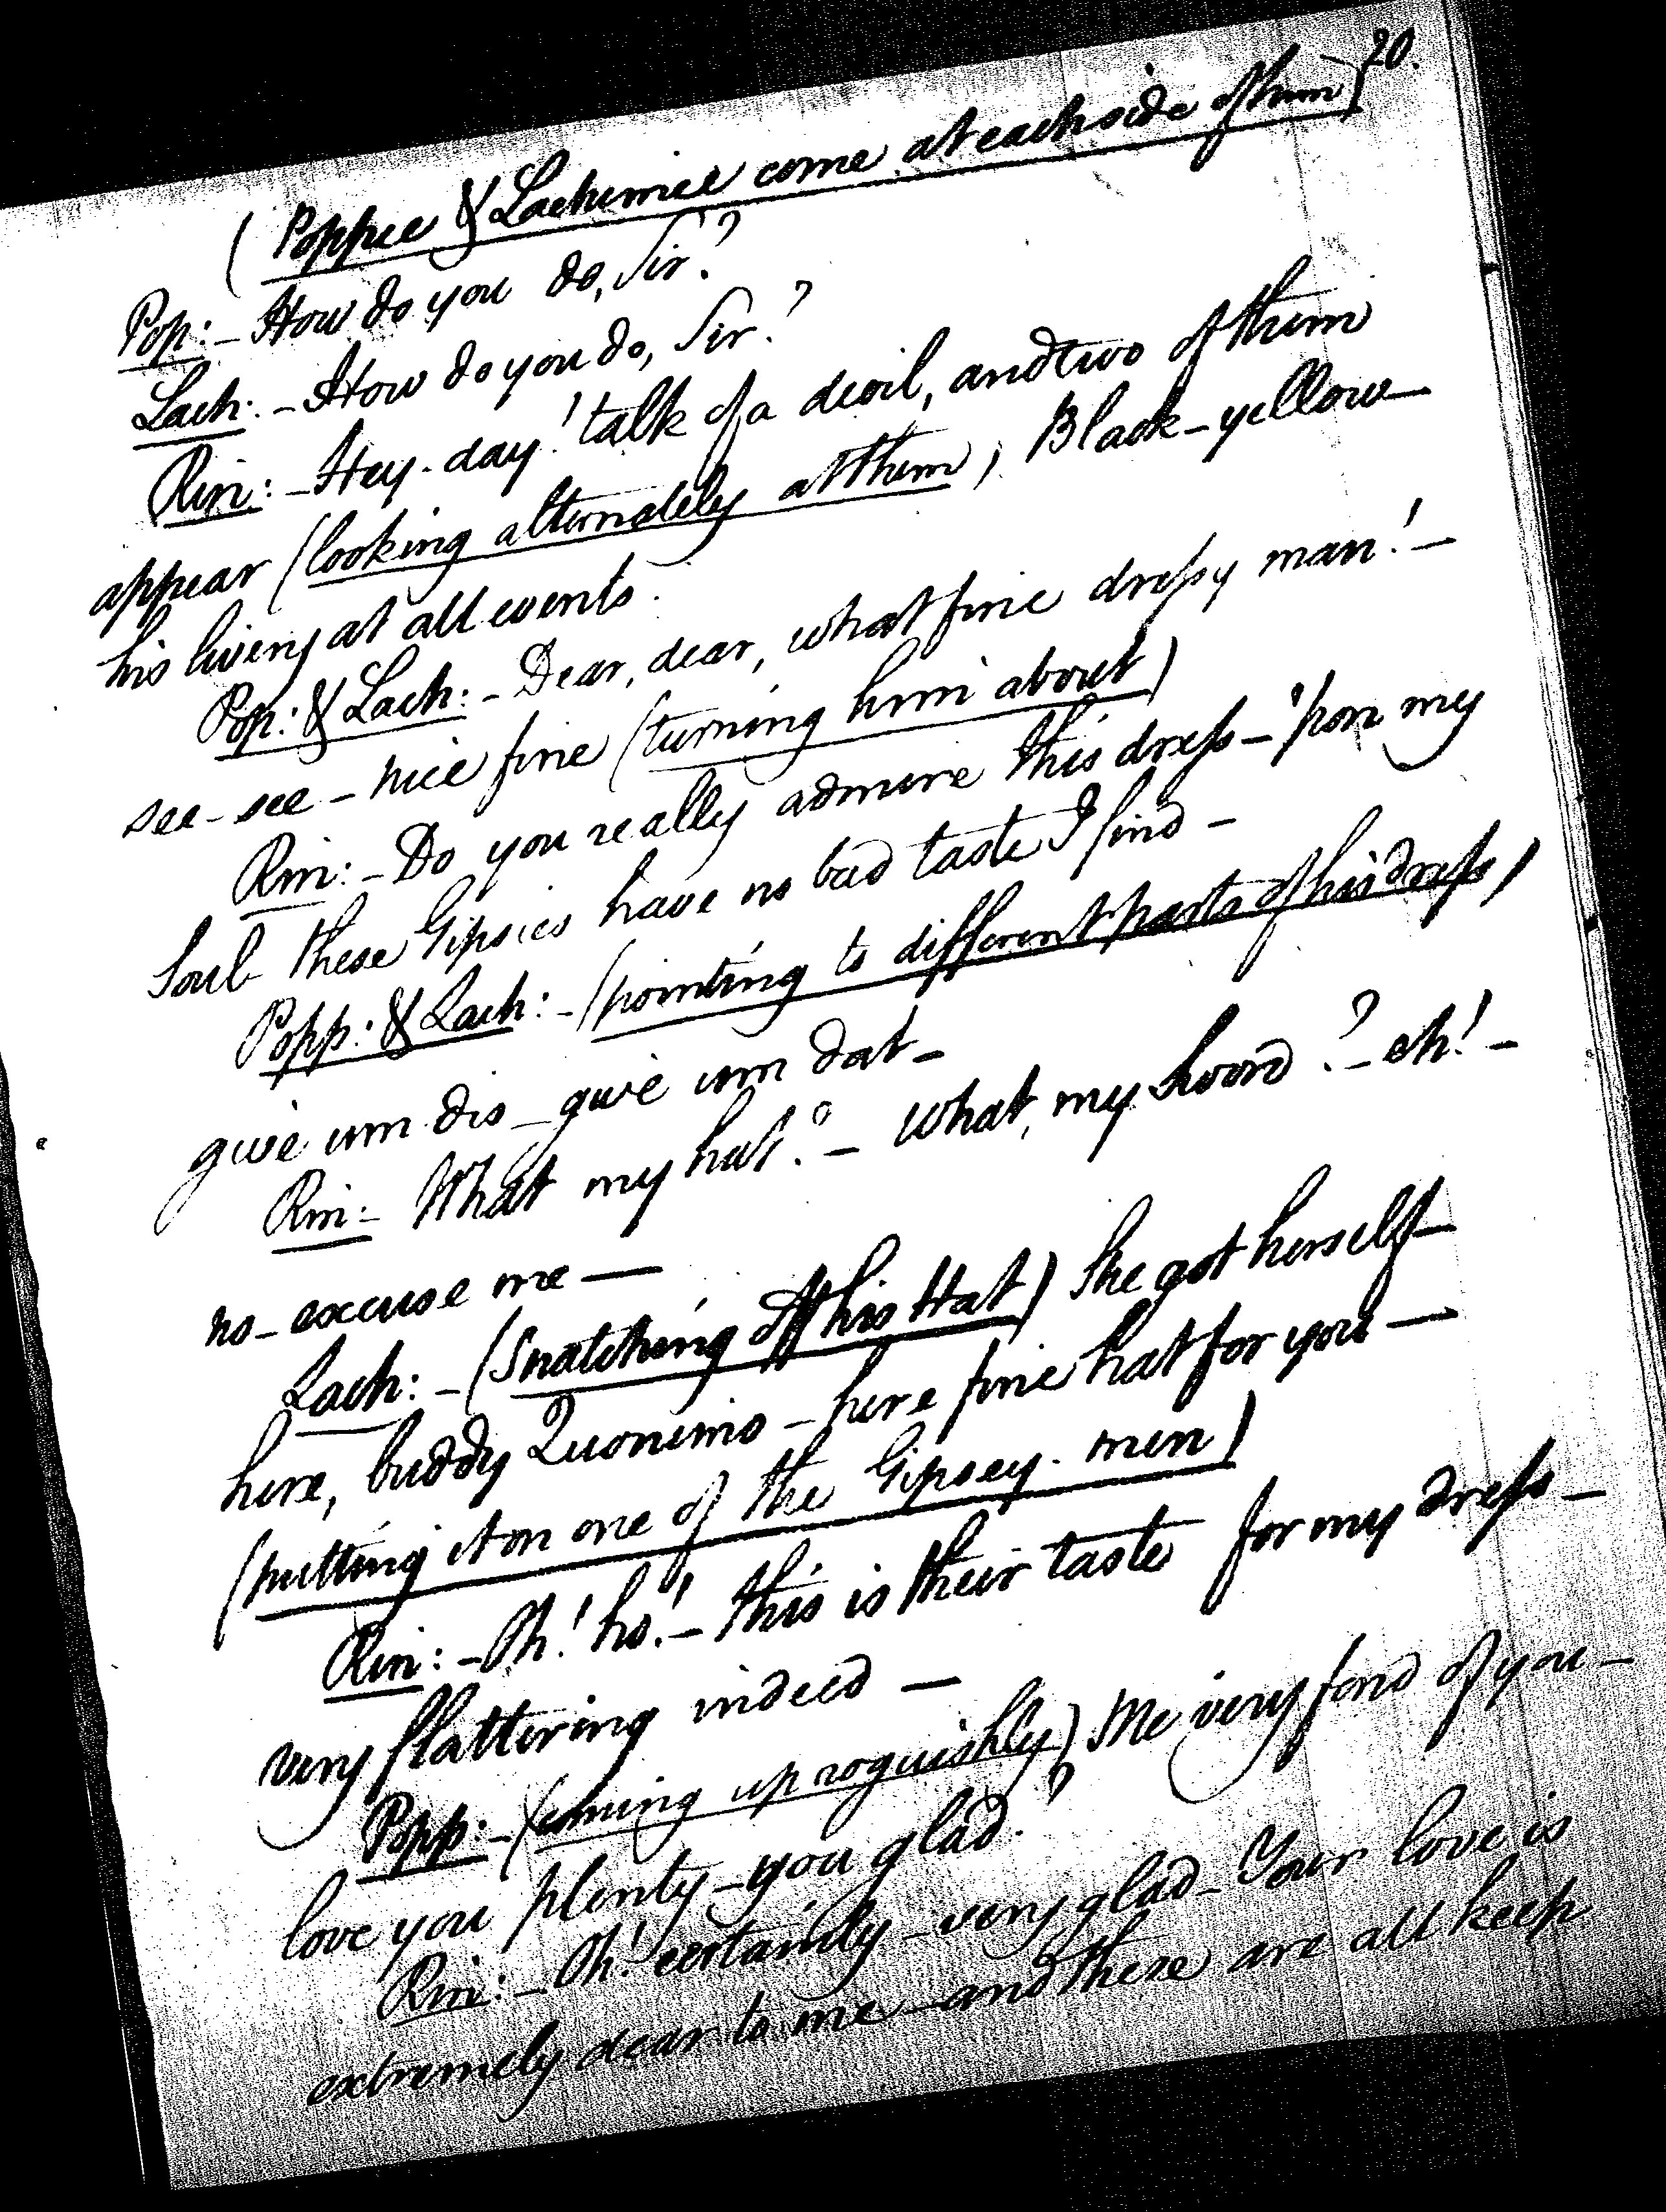 20.
(Poppee & Lachimee come at each side of him)
Pop: - How do you do, Sir?
Lach: - How do you do, Sir?
Rin: - Hey-day! talk of a devil, and two of them
appear (looking alternately at them), Black-yellow -
his livery at all events.
Pop: & Lach: - Dear, dear, what fine dressy man! -
see - see - nice fine (turning him about)
Rin: - Do you really admire this dress - 'pon my
Soul these Gipsies have no bad taste I find -
Popp: & Lach: - (pointing to different parts of his dress)
give um dis - give um dat -
Rin: - What my hat? - what, my sword? - eh! -
no - excuse me -
Lach: - (Snatching off his Hat) She got herself -
here, buddy Quonimo - here fine hat for you -
(putting it on one of the Gipsey-men)
Rin: - Oh! ho! - this is their taste for my dress -
very flattering indeed -
Popp: - (coming up roguishly) Me very fond of you -
love you plenty - you glad?
Rin: - Oh! certainly - very glad - Your love is
extremely dear to me - and these are all keep